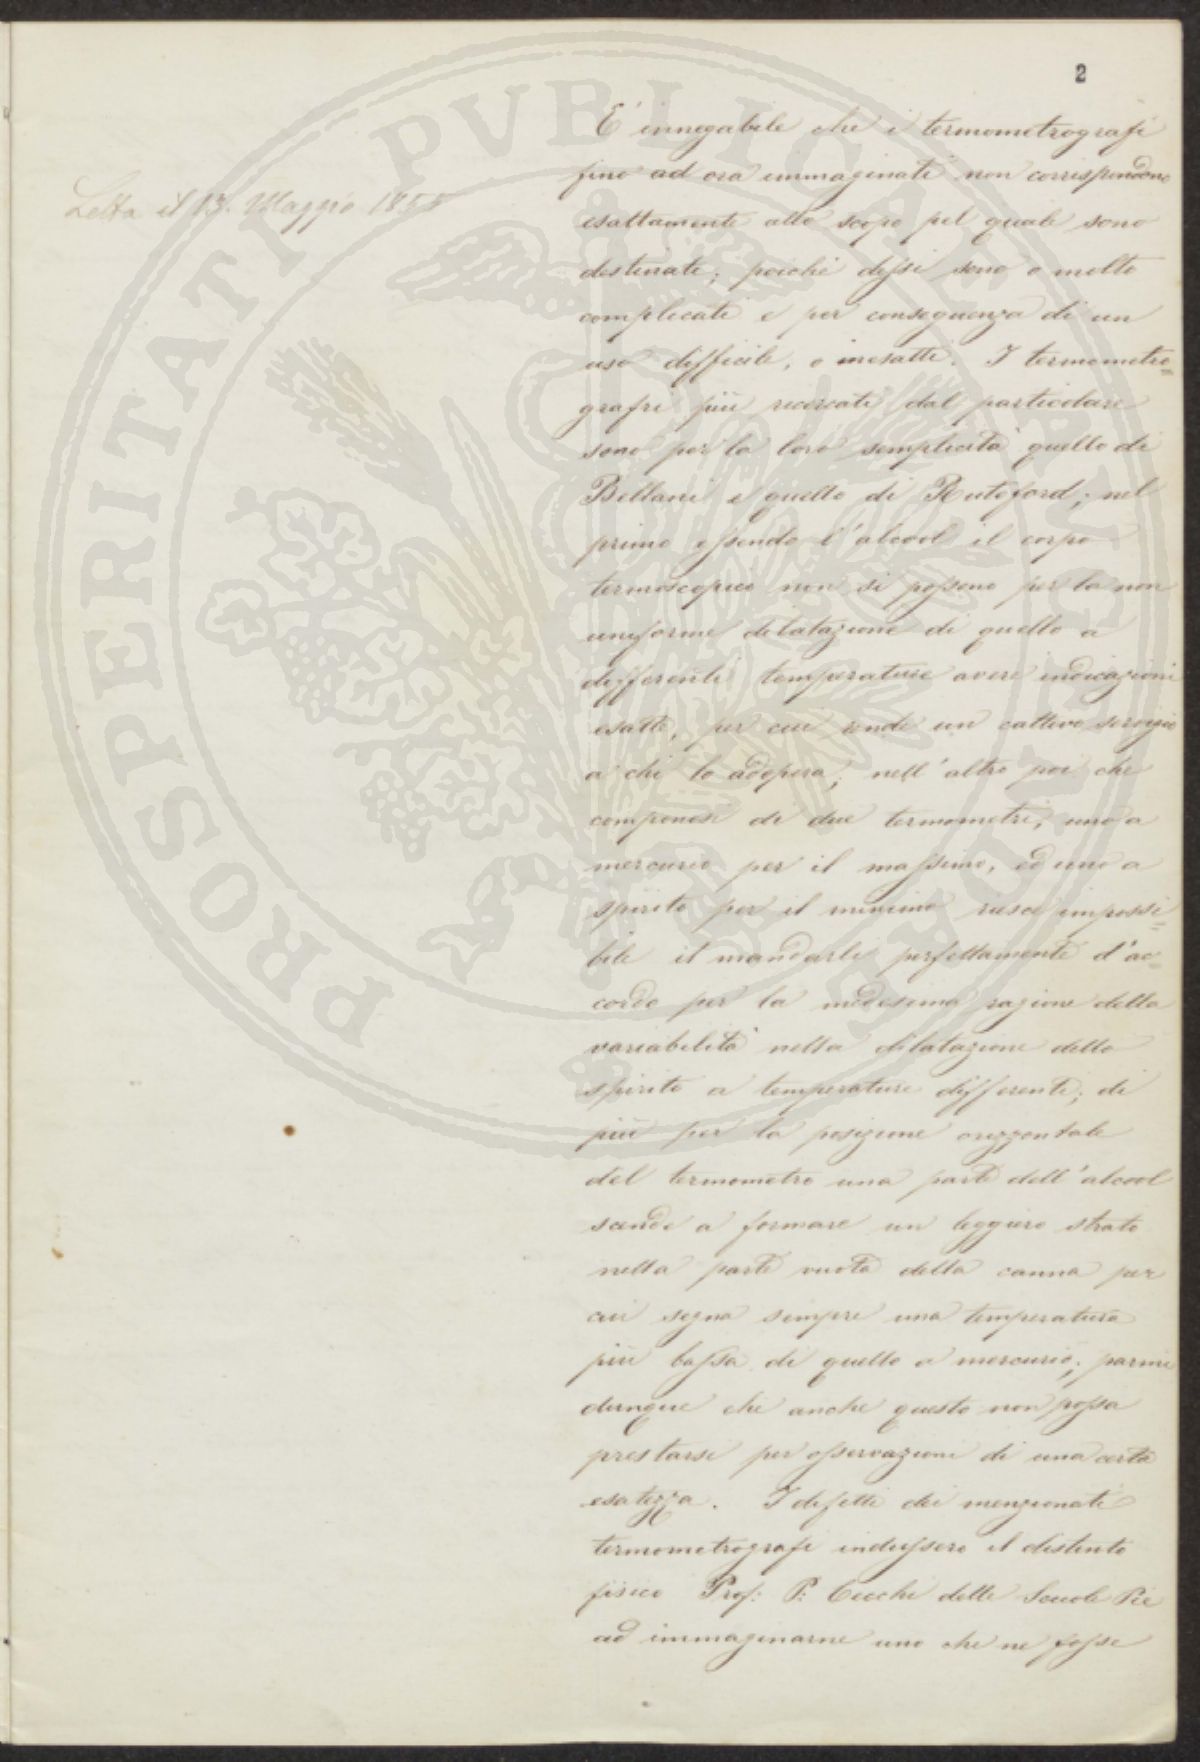 2
Letta il 13. Maggio 1855
E' innegabile che i termometrografi
fino ad ora immaginati non corrispondono
esattamente allo scopo pel quale sono
destinati; poichè dessi sono o molto
complicati e per conseguenza di un
uso difficile, o inesatti. I termometro=
grafi più ricercati dal particolare
sono per la loro semplicità quello di
Bellani e quello di Rutoford; nel
primo essendo l'alcool il corpo
termoscopico non si possono per la non
uniforme dilatazione di quello a
differenti temperature avere indicazioni
esatte, per cui rende un cattivo servizio
a chi lo adopera; nell'altro poi che
componesi di due termometri, uno a
mercurio per il massimo, ed uno a
spirito per il minimo riesce impossi=
bile il mandarli perfettamente d'ac=
cordo per la medesima ragione della
variabilità nella dilatazione dello
spirito a temperature differenti; di
più per la posizione orizzontale
del termometro una parte dell'alcool
scende a formare un leggiero strato
nella parte vuota della canna per
cui segna sempre una temperatura
più bassa di quello a mercurio; parmi
dunque che anche questo non possa
prestarsi per osservazioni di una certa
esatezza. I difetti dei menzionati
termometrografi indussero il distinto
fisico Prof: P: Cecchi delle Scuole Pie
ad immaginarne uno che ne fosse
PROSPERITATI PVBLICAE AVGENDAE